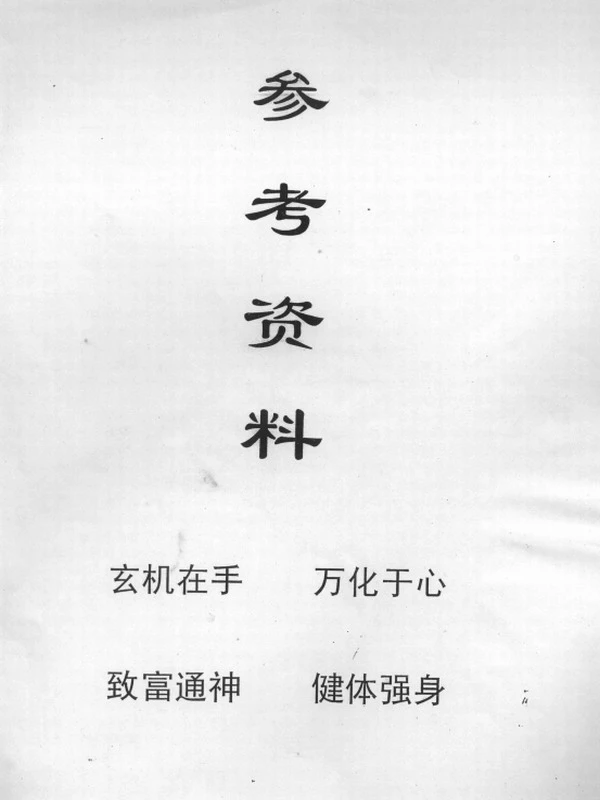 参考资料
玄机在手 万化于心
致富通神 健体强身